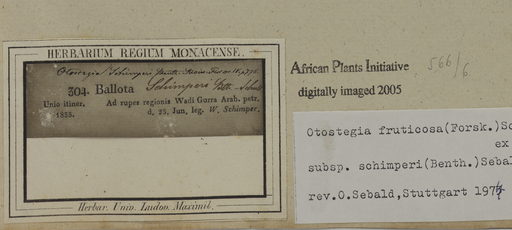 HERBARIUM REGIUM MONACENSE.
Otostegia Schimperi Benth.
304. Ballota Schimperi Bth.
Unio itiner. 1835.
Ad rupes regionis Wadi Gurra Arab. petr.
d. 25, Jun, leg. W. Schimper.
Herbar. Univ. Ludov. Maximil.
African Plants Initiative
digitally imaged 2005
566/6
Otostegia fruticosa (Forsk.) Sc
ex
subsp. schimperi (Benth.) Sebal
rev.O.Sebald, Stuttgart 197